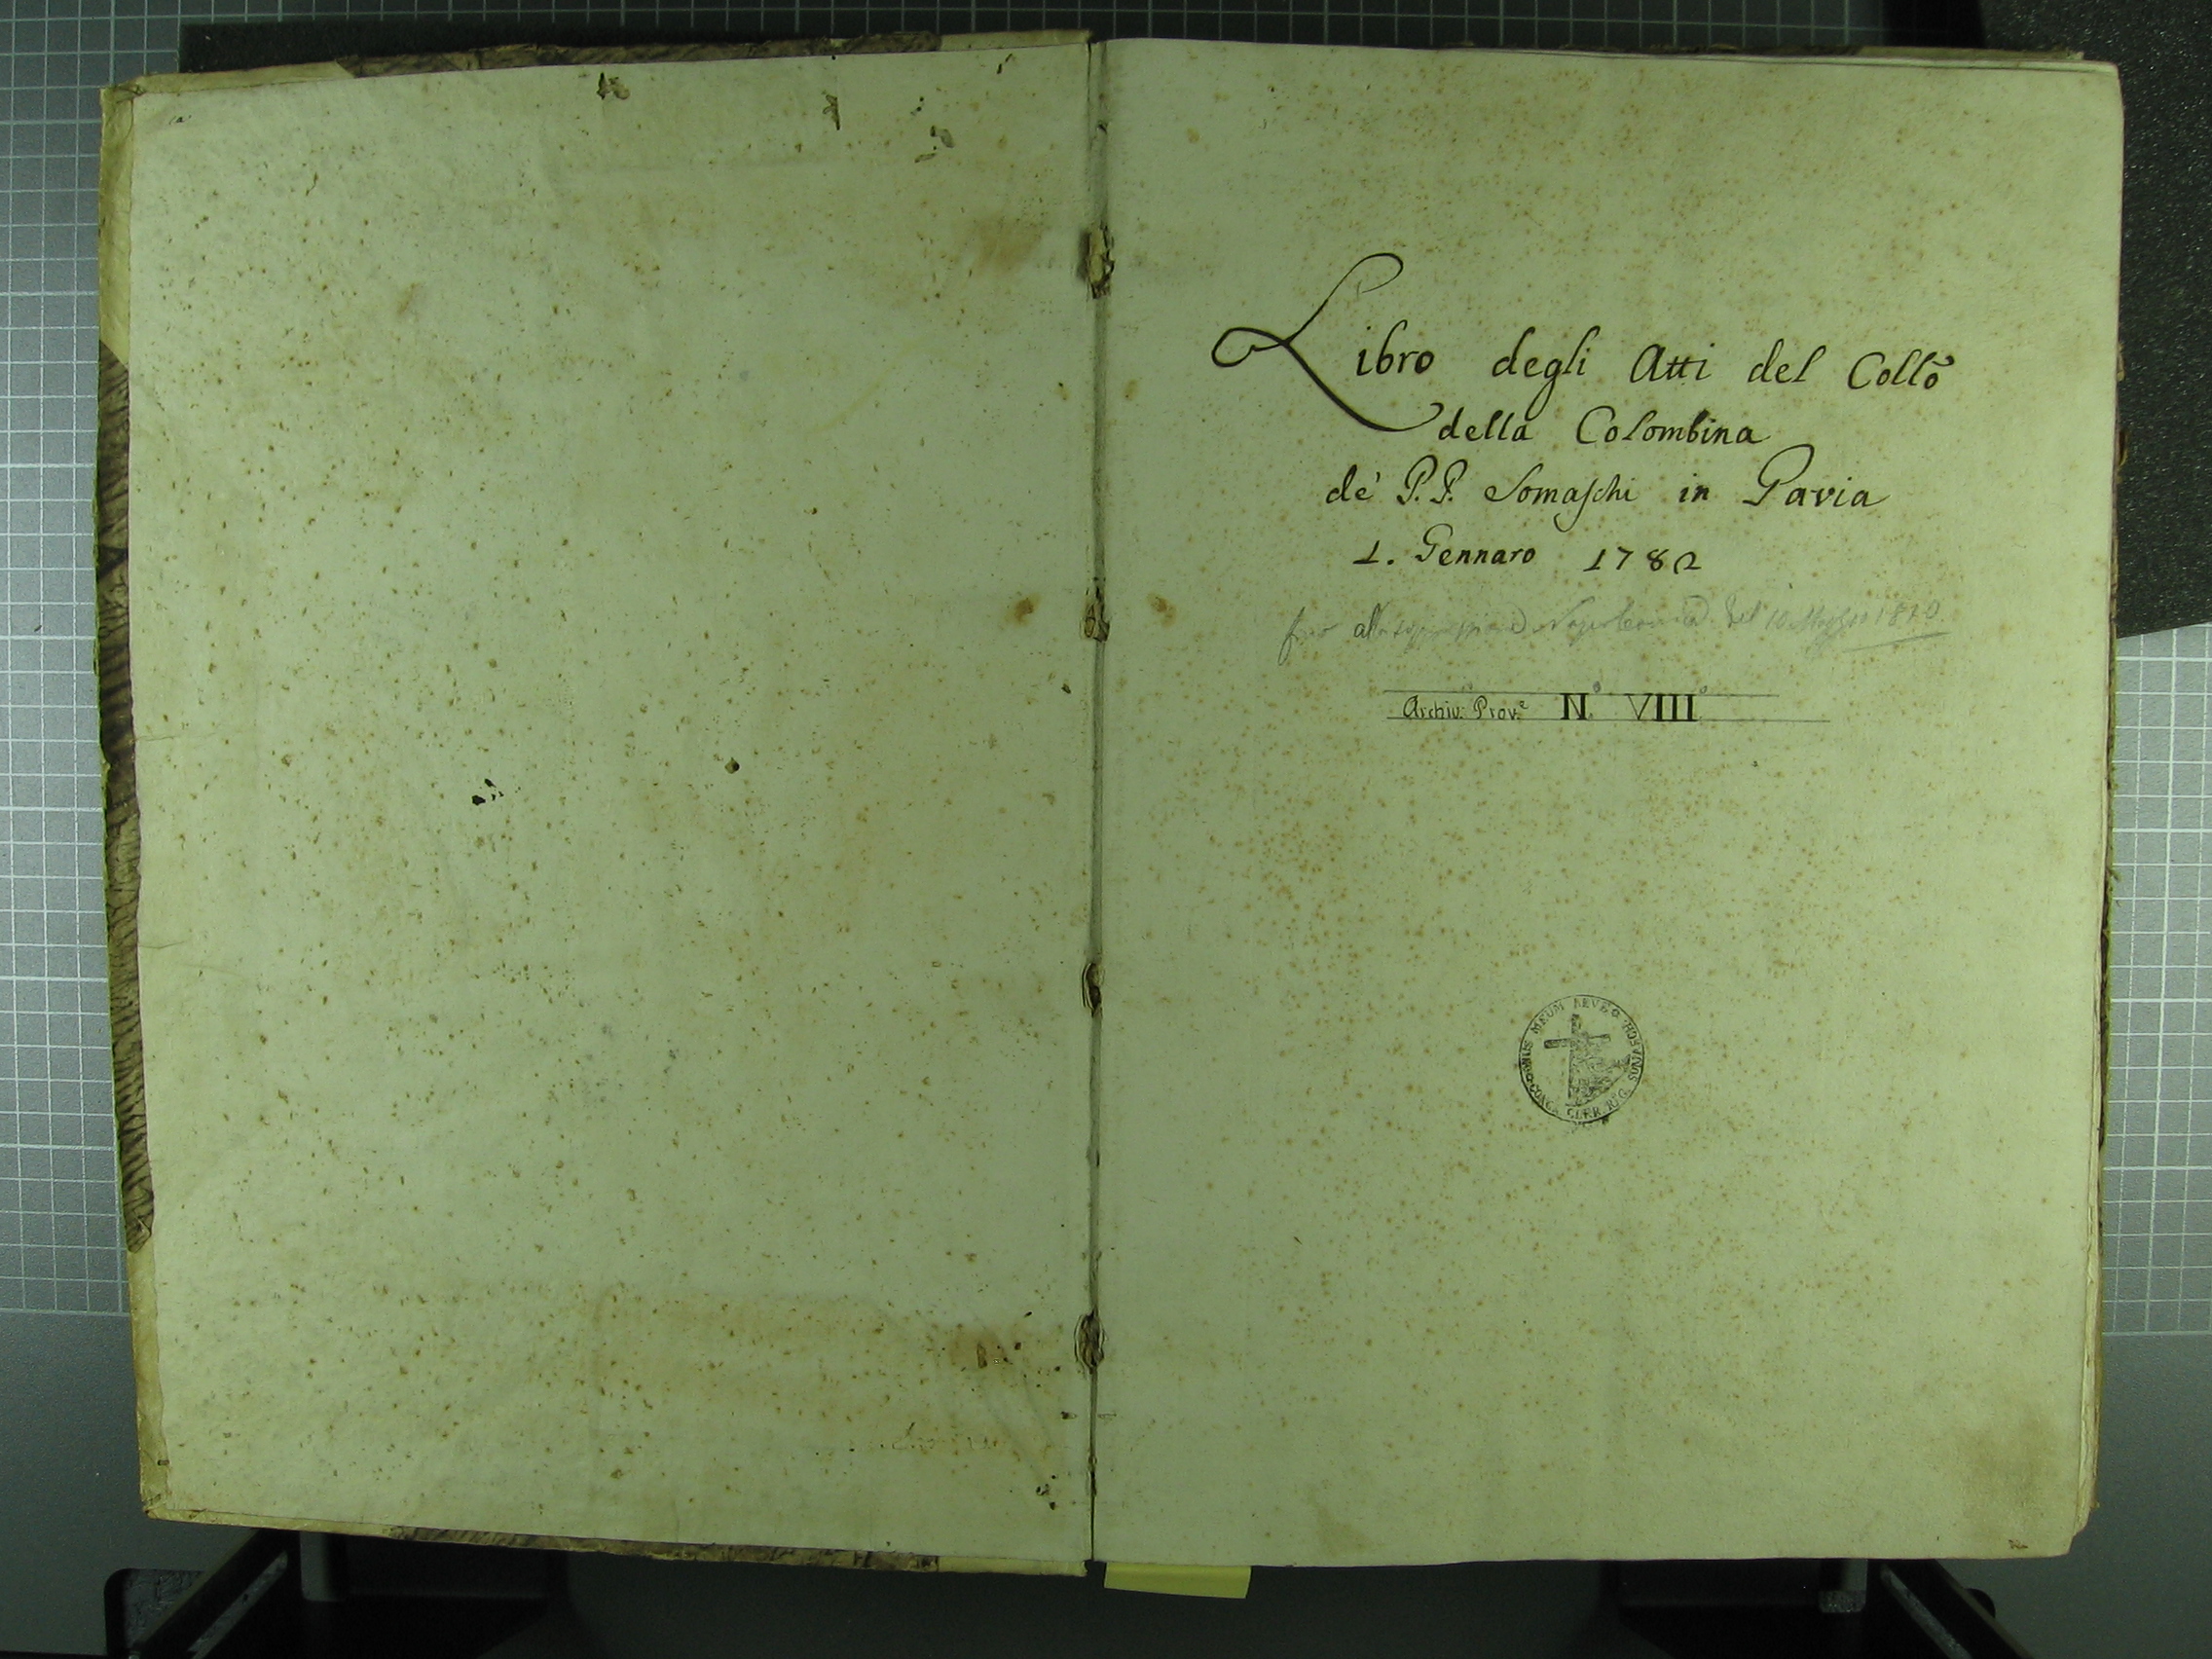 Libro degli Atti del Collõ
della Colombina
de' P.P. Somaschi in Pavia
1. Gennaro 1782
fino alla soppressione Napoleonica del 10 Maggio 1810
Archiv: Prov.e N.o VIII.o
ONUS MEUM LEVE CONGR. CLER. REG. SOMASCH.